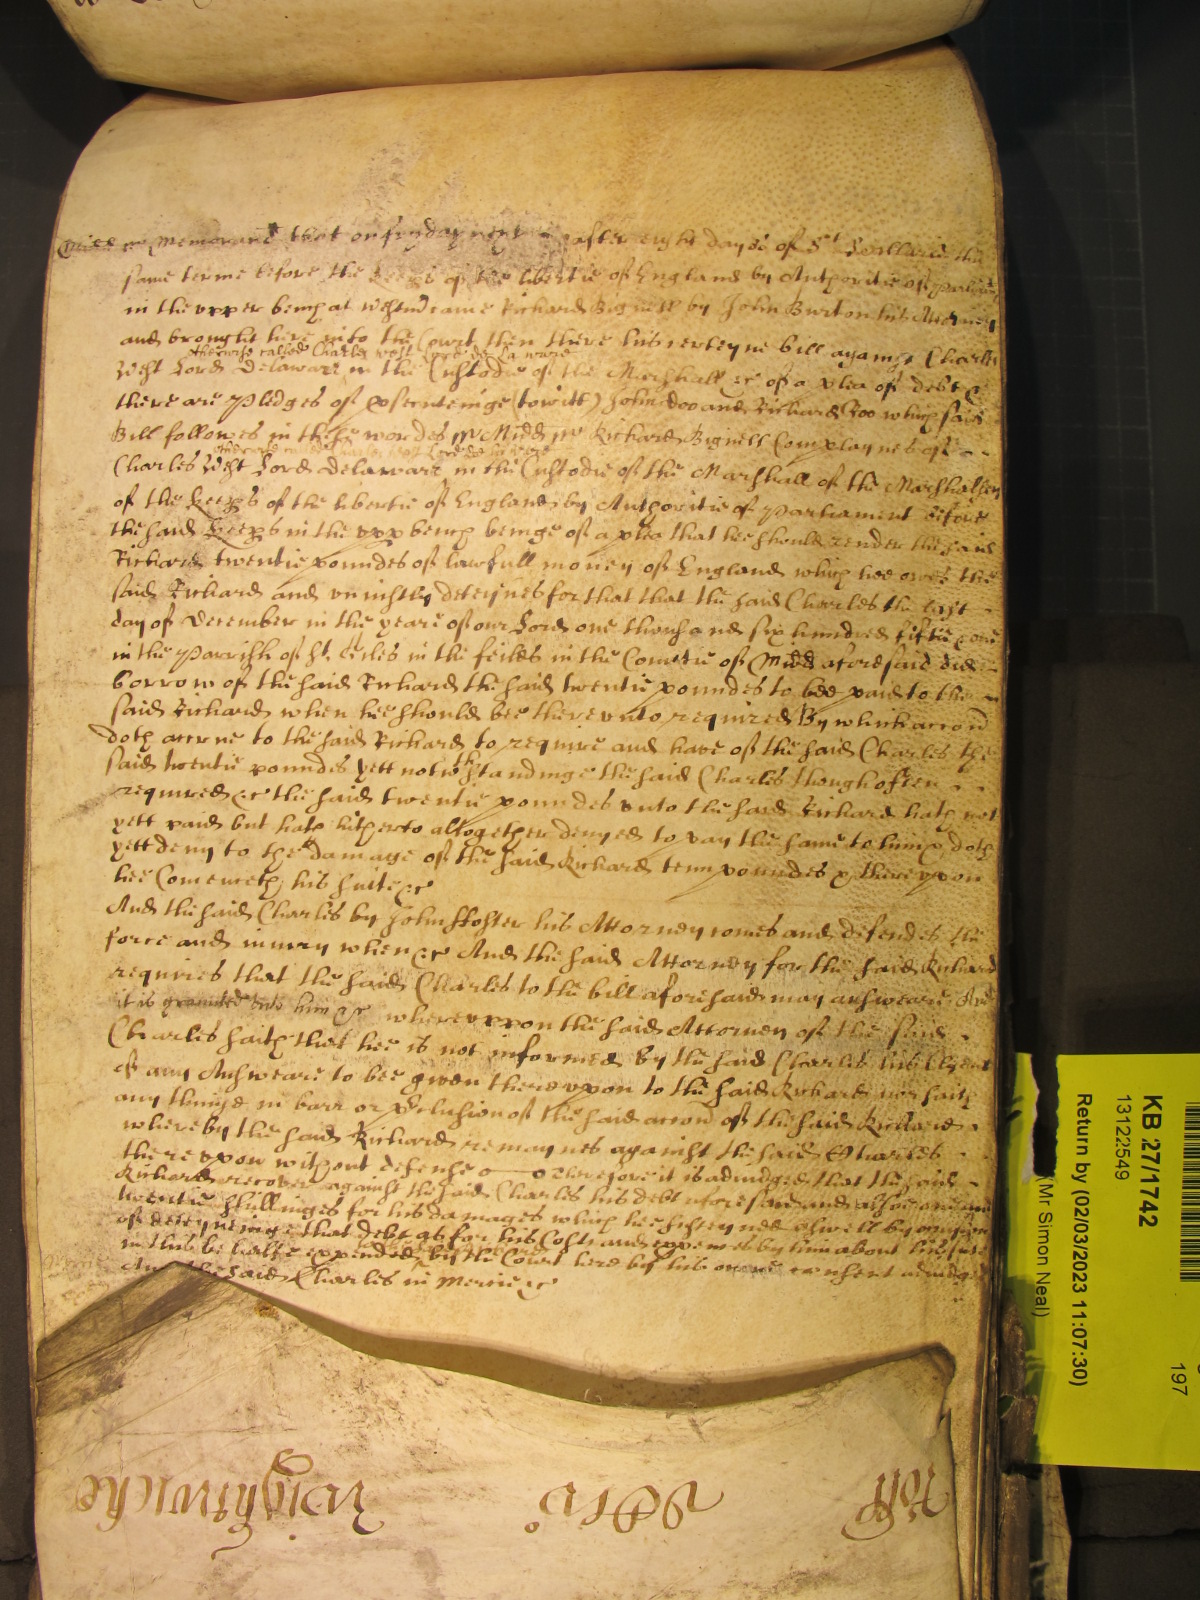 Midd ss Memorand that on fryday next after eight dayes of St Hillarie this
same terme before the Keeps of the libertie of England by Authoritie of Parliamt
in the upper bench at Westm came Richard Bignell by John Burton his Attorney
and brought here into the Court then there his certeyne bill against Charles
otherwise called Charles West Lord de la ware
West Lord Delaware in the Custodie of the Marshall &c of a plea of debt &
there are Pledges of prsecuteinge (to witt) John Doo and Richard Roo which said
Bill followes in these wordes ss Midd ss Richard Bignell Complaynes of
otherwise called Charles West Lord de la ware
Charles West Lord Delaware in the Custodie of the Marshall of the Marshalsey
of the Keeps of the libertie of England by Authoritie of Parliament before
the said Keeps in the upp bench beinge of a plea that hee should render the said
Richard twentie poundes of lawfull money of England which hee owes the
said Richard and uniustly deteynes for that that the said Charles the
day of December in the yeare of our Lord one thousand six hundred fiftie one
in the Parrish of St Giles in the feilds in the Countie of Midd aforesaid did
borrow of the said Richard the said twentie poundes to bee paid to the
said Richard when hee should bee thereunto required By which accon
doth accrue to the said Richard to require and have of the said Charles the
said twentie poundes yett notwthstandinge the said Charles though often
required &c the said twentie poundes unto the said Richard hath not
yett paid but hath hitherto altogether denyed to pay the same to him & doth
yett deny to the damage of the said Richard tenn poundes & thereupon
hee Comenceth his suite &c
And the said Charles by John ffoster his Attorney comes and defendes the
force and iniury when &c And the said Attorney for the said Richard
requires that the said Charles to the bill aforesaid may answeare And
it is graunted unto him &c whereuppon the said Attorney of the said
Charles saith that hee is not informed by the said Charles his Clyent
of any Answeare to bee given thereupon to the said Richard nor saith
any thinge in barr or preclusion of the said accon of the said Richard
whereby the said Richard remaynes against the said Charles
thereupon without defense Therefore it is adiudged that the said
Richard recover against the said Charles his debt aforesaid and alsoe
twentie shillinges for his damages which hee susteyned aswell by occasion
of deteyneinge that debt as for his Costs and expences by him about his suite
in this behalfe expended by the Court here by his owne consent adiudged
And the said Charles in Mercie &c
Roll
Wightwicke
KB 27/1742
13122549
Return by (02/03/2023 11:07:30)
(Mr Simon Neal)
197